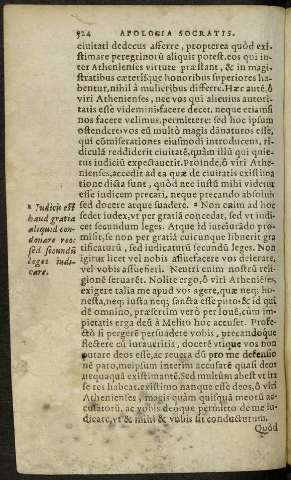 524 APOLOGIA SOCRATIS.
ciuitati dedecus afferre, propterea quòd exi-
stimare peregrinorũ aliquis potest. eos qui in-
ter Athenienses virtute præstant, & in magi-
stratibus cæterisque honoribus superiores ha-
bentur, nihil à mulieribus differre. Hæc autẽ, ô
viri Athenienses, nec vos qui alicuius autori-
tatis esse videmini facere decet, neque etiam si
nos facere velimus, permittere: sed hoc ipsum
ostendere, vos eũ multò magis dãnaturos esse,
qui cõmiserationes eiusmodi introducens, ri-
diculã reddiderit ciuitatẽ, quàm illũ qui quie-
tus iudiciũ expectauerit. Proinde, ô viri Athe-
nienses, accedit ad ea quæ de ciuitatis existima
tione dicta sunt, quòd nec iustũ mihi videtur
esse iudicem precari, neque precando absolui:
sed docere atque suadere. Non enim ad hoc
sedet iudex, vt per gratiã concedat, sed vt iudi-
cet secundum leges. Atque id iureiurãdo pro-
misit, se non per gratiã cuicunque libuerit gra
tificaturũ, sed iudicaturũ secundũ leges. Non
igitur licet vel nobis assuefacere vos deierare,
vel vobis assuefieri. Neutri enim nostrũ reli-
gionẽ seruarẽt. Nolite ergo, ô viri Athenienses,
exigere talia me apud vos agere, quæ neque ho-
nesta, neque iusta neque sancta esse puto: & id qui
dẽ omnino, præsertim verò per Iouẽ, cùm im-
pietatis erga deos à Melito hoc accuser. Profe-
ctò si pergerẽ persuadere vobis, precandoque
flectere cũ iuraueritis, docerẽ vtique vos non
putare deos esse, ac reuera dũ pro me defensio
nẽ paro, meipsum interim accusarẽ quasi deos
nequaquã existimantẽ. Sed multùm abest vt ita
se res habeat. existimo nanque esse deos, ô viri
Athenienses, magis quàm quisquã meorũ ac-
cusatorũ, ac vobis deoque permitto de me iu-
dicare, vt & mihi & vobis sit conducturum.
Quòd
Iudicis est
haud gratia
aliquid con-
donare reo:
sed secundũ
leges iudi-
care.